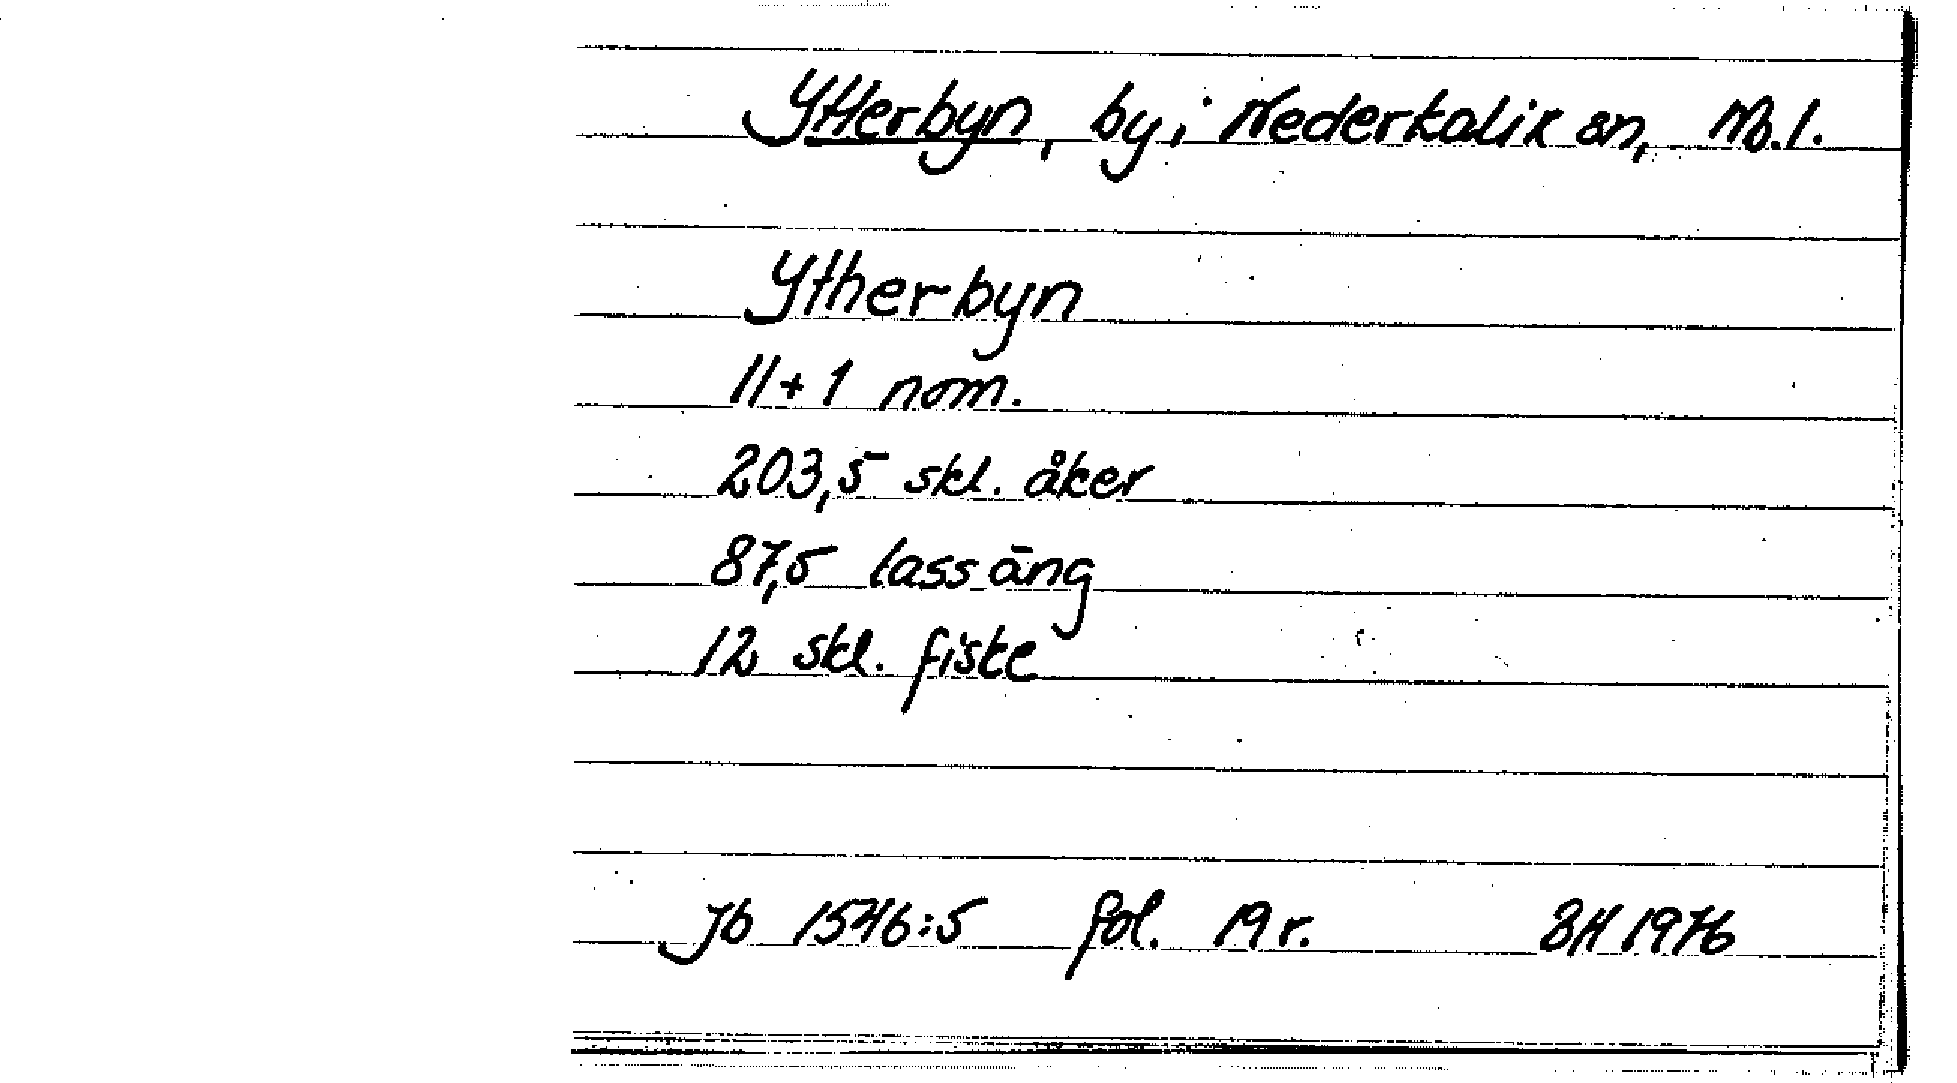 Ytterbyn, by i Nederkalix sn, Nb.l.
Ytherbyn
11+1 nom.
203,5 skl. åker
87,5 lass äng
12 skl. fiske
Jb 1546:5 fol. 19 r. BH 1976